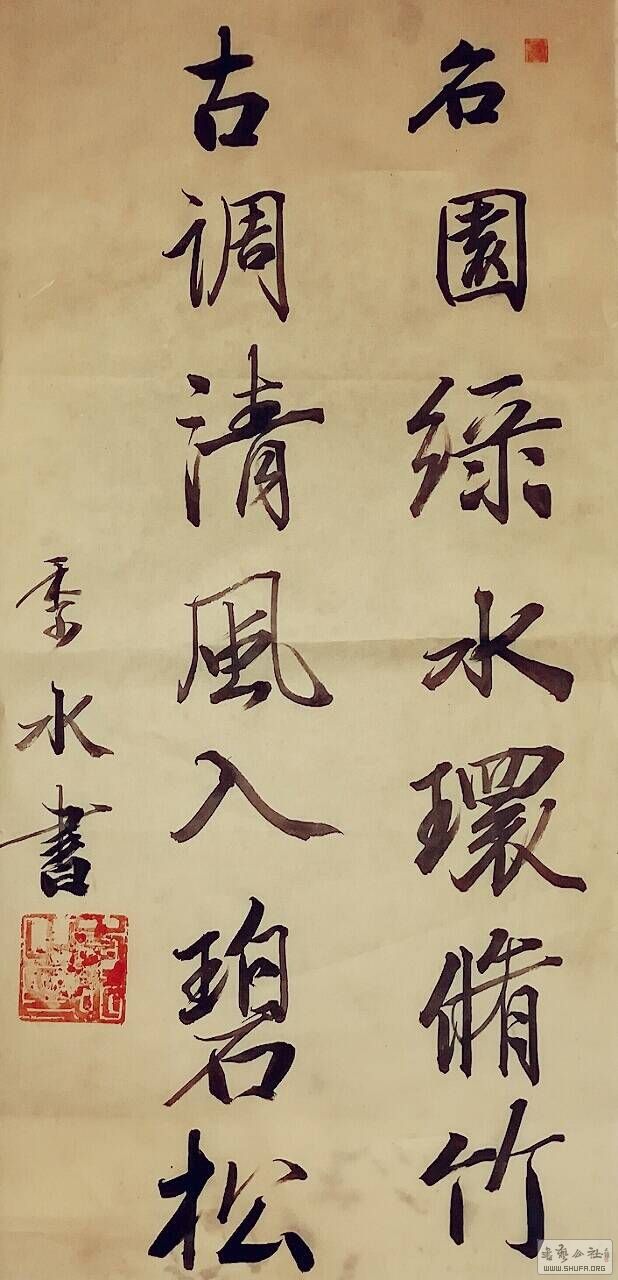 名園綠水環脩竹
古調清風入碧松
季水書
書藝公社
WWW.SHUFA.ORG